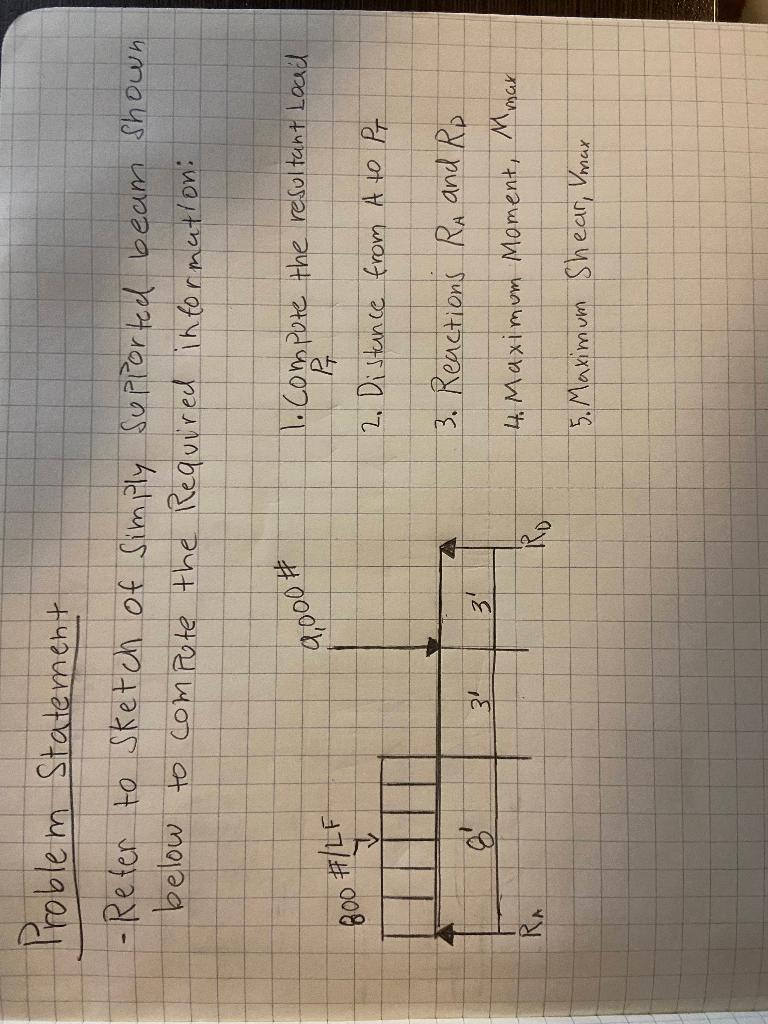 Problem Statement
- Refer to Sketch of Simply Supported beam shown
below to compute the Required information:
1. Compute the resultant Load
PT
2. Distance from A to PT
3. Reactions RA and RD
4. Maximum Moment, Mmax
5. Maximum Shear, Vmax
9,000 #
800 #/LF
8' 3' 3'
RA RD